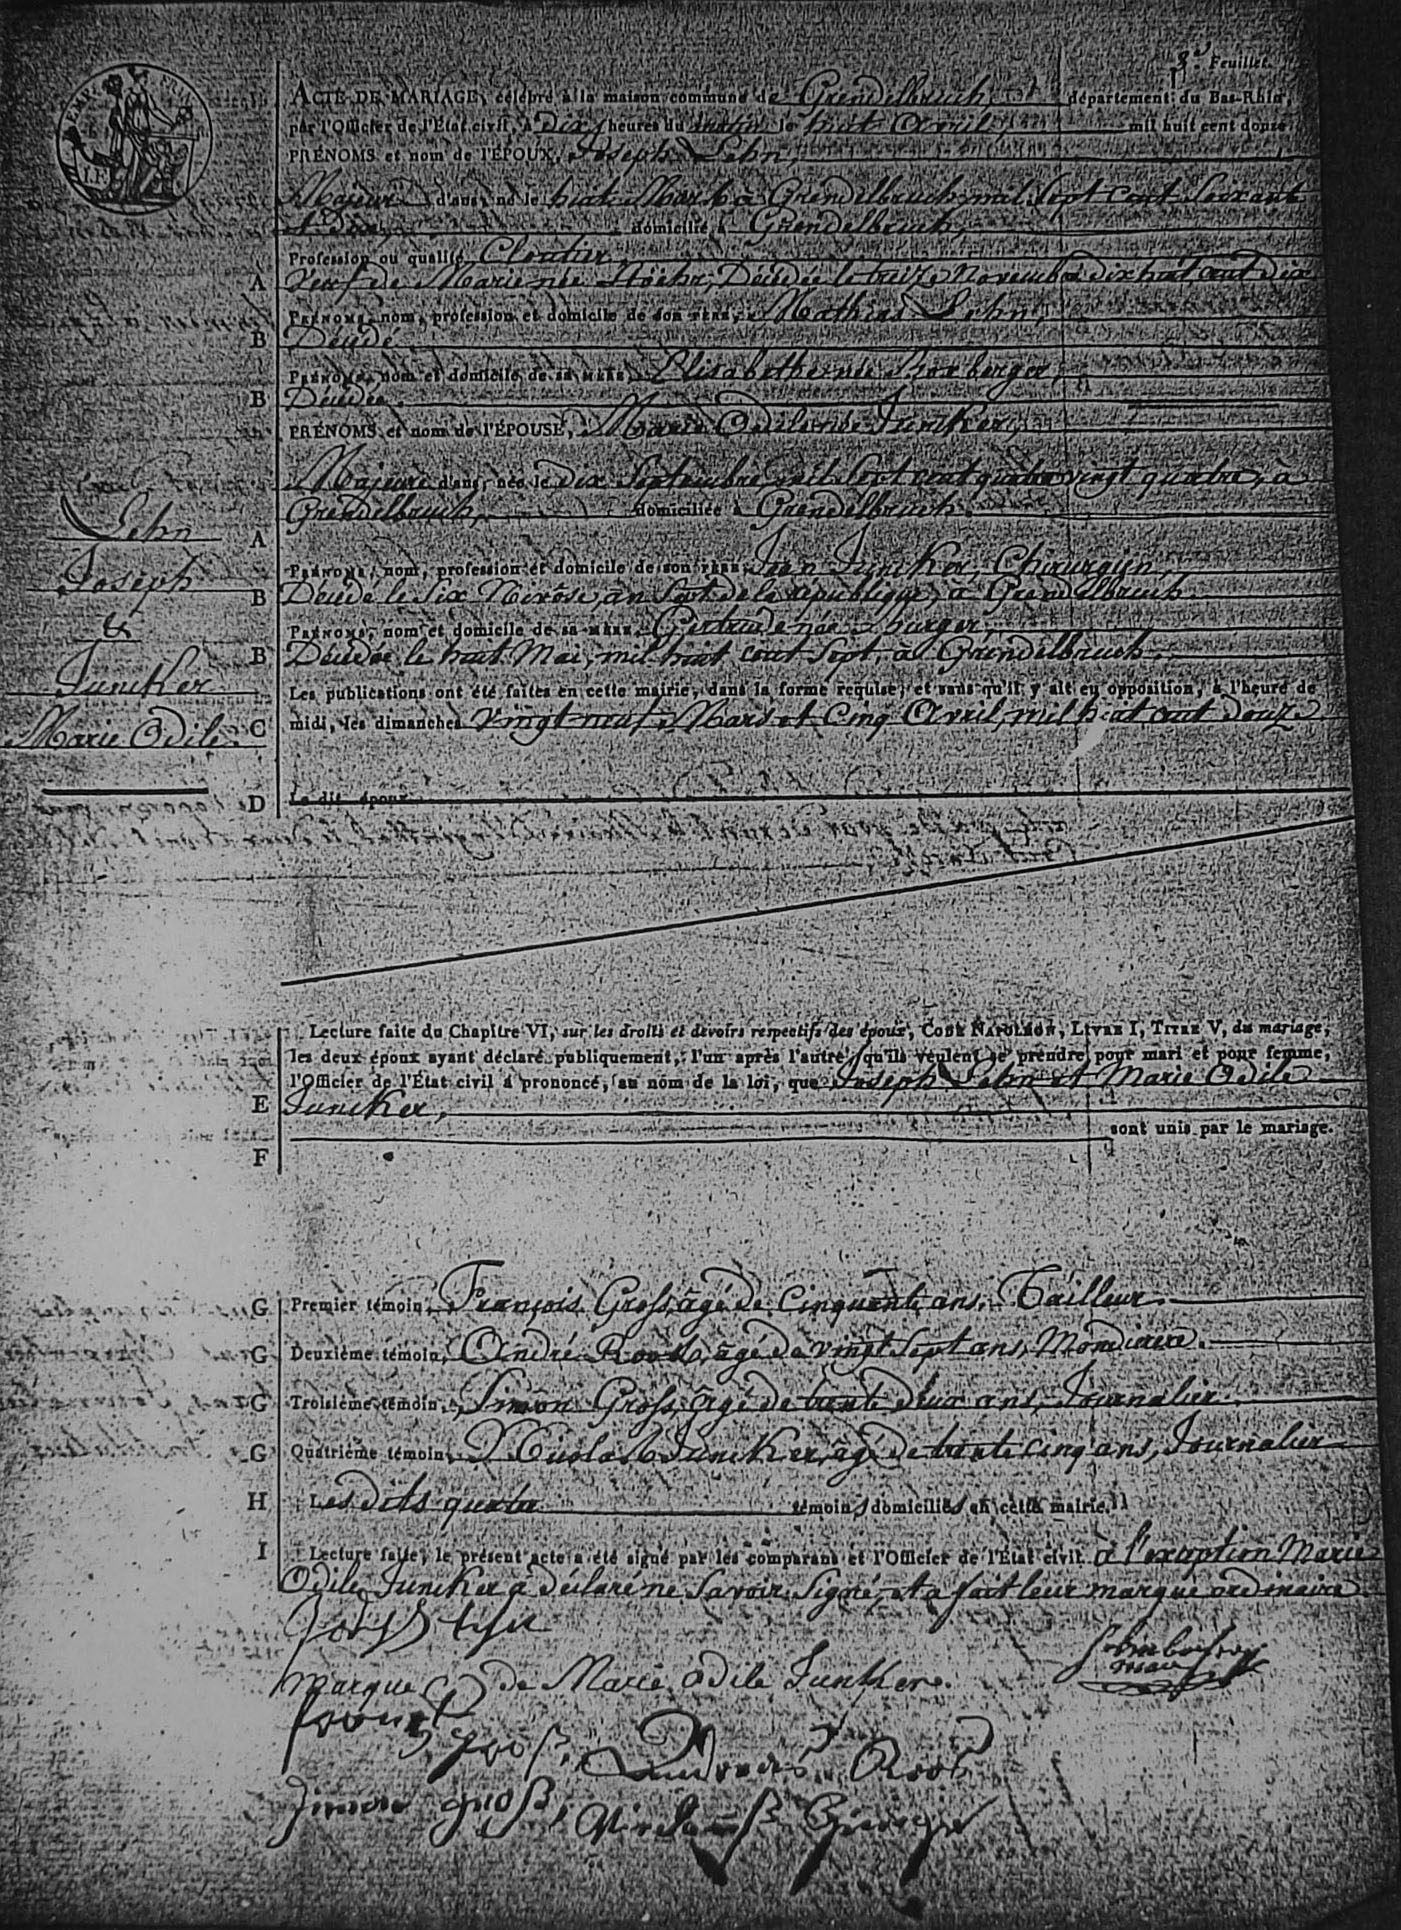 8.e Feuillet.
ACTE DE MARIAGE, célébré à la maison commune de Grendelbruch, département du Bas-Rhin,
par l'Officier de l'État civil, à Dix heures du matin le huit Avril, mil huit cent douze.
PRÉNOMS et nom de l'ÉPOUX, Joseph Lehn,
Majeur d'ans, né le huit Mars à Grendelbruch mil Sept cent Soixante
et dix, domicilié à Grendelbruch,
Profession ou qualité, Cloutier,
A Veuf de Marie née Stoehr, Décédée le treize Novembre dix huit cent Dix
PRÉNOMS, nom, profession et domicile de son PÈRE, Mathias Lehn,
B Décédé
PRÉNOMS, nom et domicile de sa MÈRE, Elisabethe née
B Décédée.
PRÉNOMS et nom de l'ÉPOUSE, Marie Odile née Juncker,
Majeure d'ans, née le dix Septembre mil Sept cent quatre vingt quatre, à
Grendelbruch, domiciliée à Grendelbruch.
Lehn
A
Joseph
PRÉNOMS, nom, profession et domicile de son PÈRE, Jean Juncker, Chirurgien
B Décédé le Six Nivôse, an Sept de la république, à Grendelbruch.
&
PRÉNOMS, nom et domicile de sa MÈRE, Gertrude née burger,
B Décédée le huit Mai, mil huit cent Sept, à Grendelbruch.
Juncker
Les publications ont été faites en cette mairie, dans la forme requise, et sans qu'il y ait eu opposition, à l'heure de
Marie Odile. C midi, les dimanches vingt neuf Mars et Cinq Avril, mil huit cent douze
D Le dit époux
Lecture faite du Chapitre VI, sur les droits et devoirs respectifs des époux, CODE NAPOLÉON, LIVRE I, TITRE V, du mariage,
les deux époux ayant déclaré publiquement, l'un après l'autre, qu'ils veulent se prendre pour mari et pour femme,
l'Officier de l'État civil a prononcé, au nom de la loi, que Joseph Lehn et Marie Odile
E Juncker,
sont unis par le mariage.
F
G Premier témoin, François Gross, âgé de Cinquante ans, Tailleur.
G Deuxième témoin, André Roos, âgé de vingt Sept ans,
G Troisième témoin, Simon Gross, âgé de trente deux ans, Journalier.
G Quatrième témoin, Nicolas Juncker, âgé de trente cinq ans, Journalier
H Les dits quatre témoins domiciliés en cette mairie.
I Lecture faite, le présent acte a été signé par les comparans et l'Officier de l'État civil. à l'exception Marie
Odile Juncker a déclaré ne Savoir Signé, et a fait leur marque ordinaire
marque de Marie odile Junker.
groß, Andreas Roos
Simon groß,